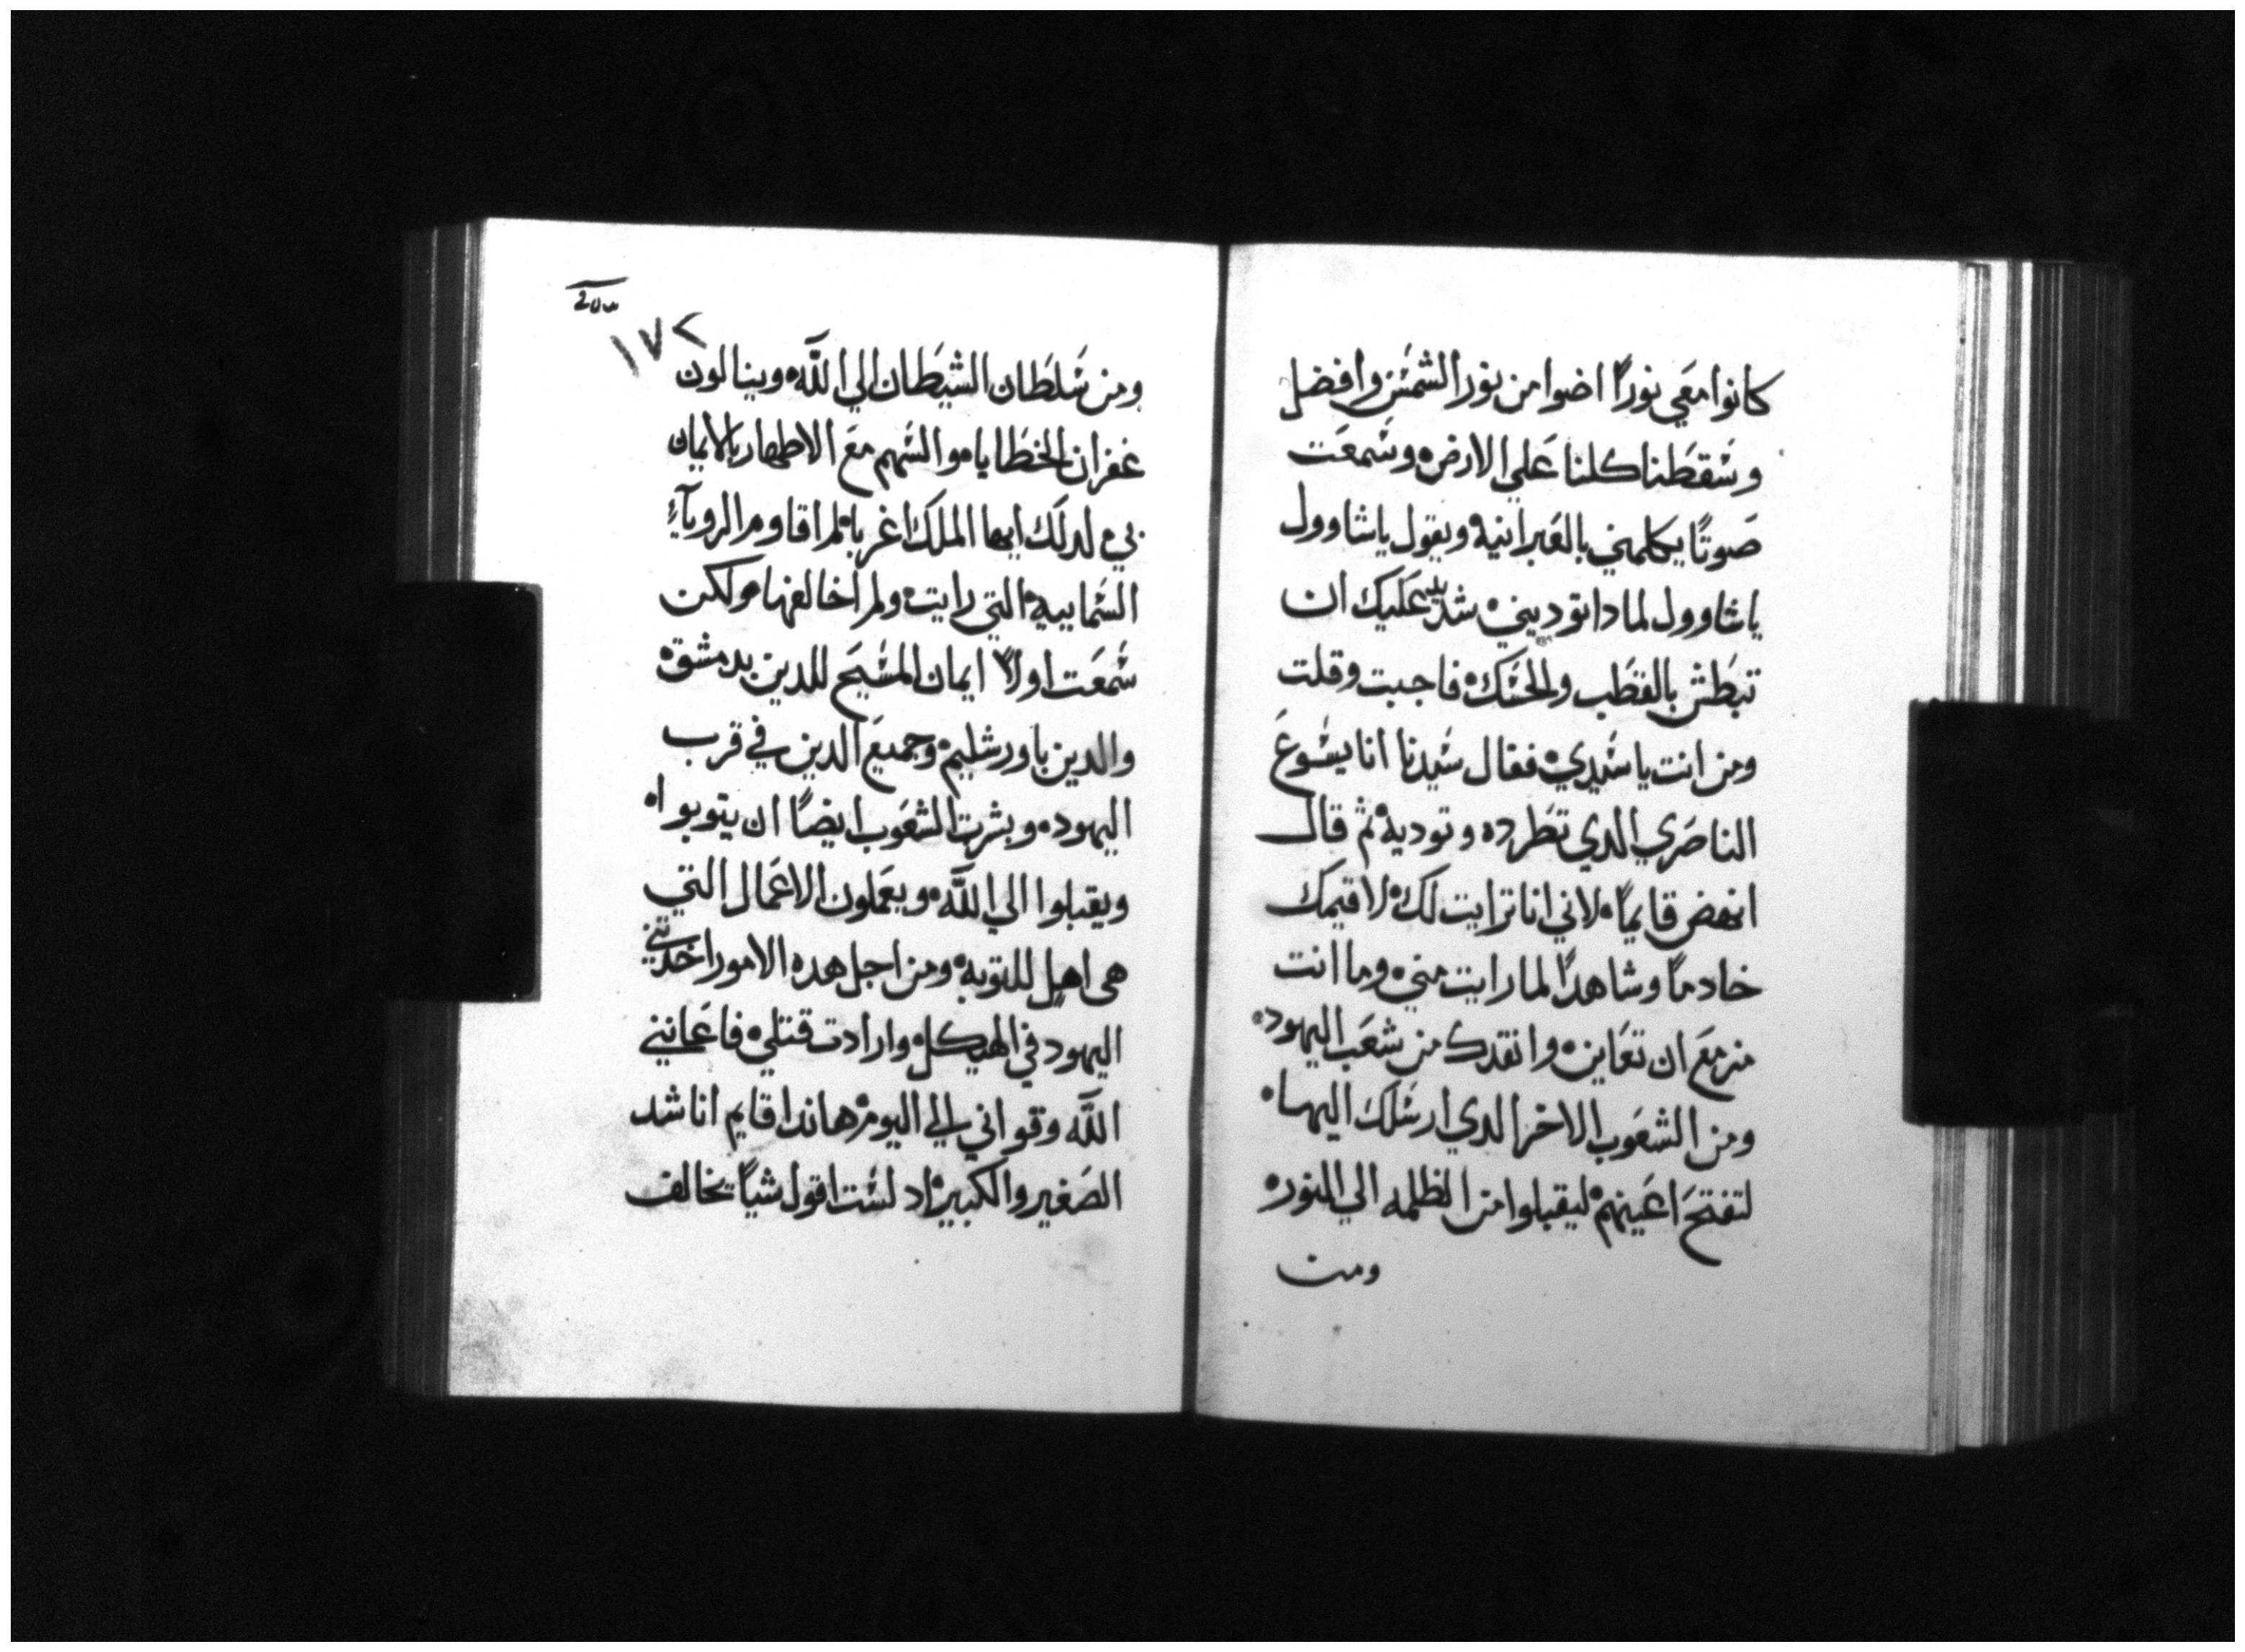 كانوا معي نوراً اضوا من نور الشمس وافضل
وسقطنا كلنا علي الارض وسمعت
صوتاً يكلمني بالعبرانية ويقول ياشاوول
ياشاوول لمادا توديني شديد عليك ان
تبطش بالقطب والحسك فاجبت وقلت
ومن انت ياسيدي فقال سيدنا انا يسوع
الناصري الدي تطرده وتوديه ثم قال
انهض قايماً لاني انا ترايت لك لاقيمك
خادماً وشاهداً لما رايت مني وما انت
مزمع ان تعاين وانقدك من شعب اليهود
ومن الشعوب الاخر الدي ارسلك اليها
لتفتح اعينهم ليقبلوا من الظلمه الي النور
ومن
١٧٢
ومن سلطان الشيطان الي الله وينالون
غفران الخطايا والسهم مع الاطهار بالايمان
بي لدلك ايها الملك اغربا لم اقاوم الروياء
السمايية التي رايت ولم اخالفها ولكن
سمعت اولاً ايمان المسيح للدين بدمشق
والدين باورشليم وجميع الدين في قرب
اليهود وبشرت الشعوب ايضاً ان يتوبوا
ويقبلوا الي الله ويعملون الاعمال التي
هى اهل للتوبة ومن اجل هده الامور اخدتني
اليهود في الهيكل وارادت قتلي فاعانني
الله وقواني الي اليوم هاندا قايم اناشد
الصغير والكبير اد لست اقول شياً يخالف